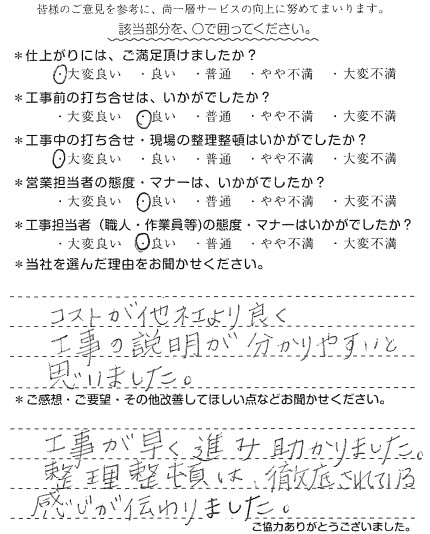 皆様のご意見を参考に、尚一層サービスの向上に努めてまいります。
該当部分を、○で囲ってください。
＊仕上がりには、ご満足頂けましたか？
・大変良い ・良い ・普通 ・やや不満 ・大変不満
＊工事前の打ち合せは、いかがでしたか？
・大変良い ・良い ・普通 ・やや不満 ・大変不満
＊工事中の打ち合せ・現場の整理整頓はいかがでしたか？
・大変良い ・良い ・普通 ・やや不満 ・大変不満
＊営業担当者の態度・マナーは、いかがでしたか？
・大変良い ・良い ・普通 ・やや不満 ・大変不満
＊工事担当者（職人・作業員等)の態度・マナーはいかがでしたか？
・大変良い ・良い ・普通 ・やや不満 ・大変不満
＊当社を選んだ理由をお聞かせください。
コストが他社より良く
工事の説明が分かりやすいと
思いました。
＊ご感想・ご要望・その他改善してほしい点などお聞かせください。
工事が早く進み助かりました。
整理整頓は、徹底されている
感じが伝わりました。
ご協力ありがとうございました。